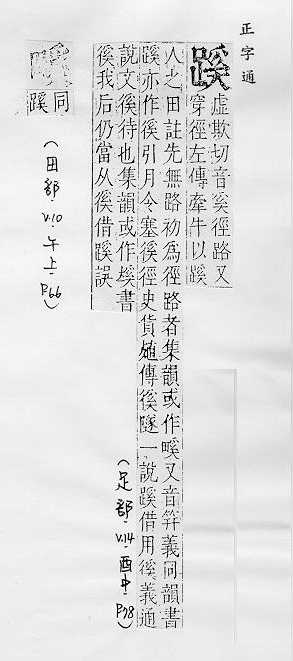 正字通
蹊
虛欹切音奚徑路又
穿徑左傳牽牛以蹊
人之田註先無路初為徑路者集韻或作又音筓義同韻書
蹊亦作徯引月令塞徯徑史貨殖傳徯隧一說蹊借用徯義通
說文徯待也集韻或作書
徯我后仍當从徯借蹊誤
(足部, V.14, 酉中, P.78)
同
蹊
(田部, V.10, 午上, P.66)